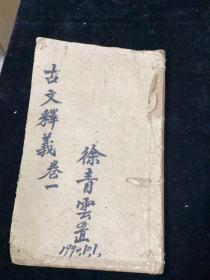 古文釋義卷一
徐青雲置
1990.1.1.